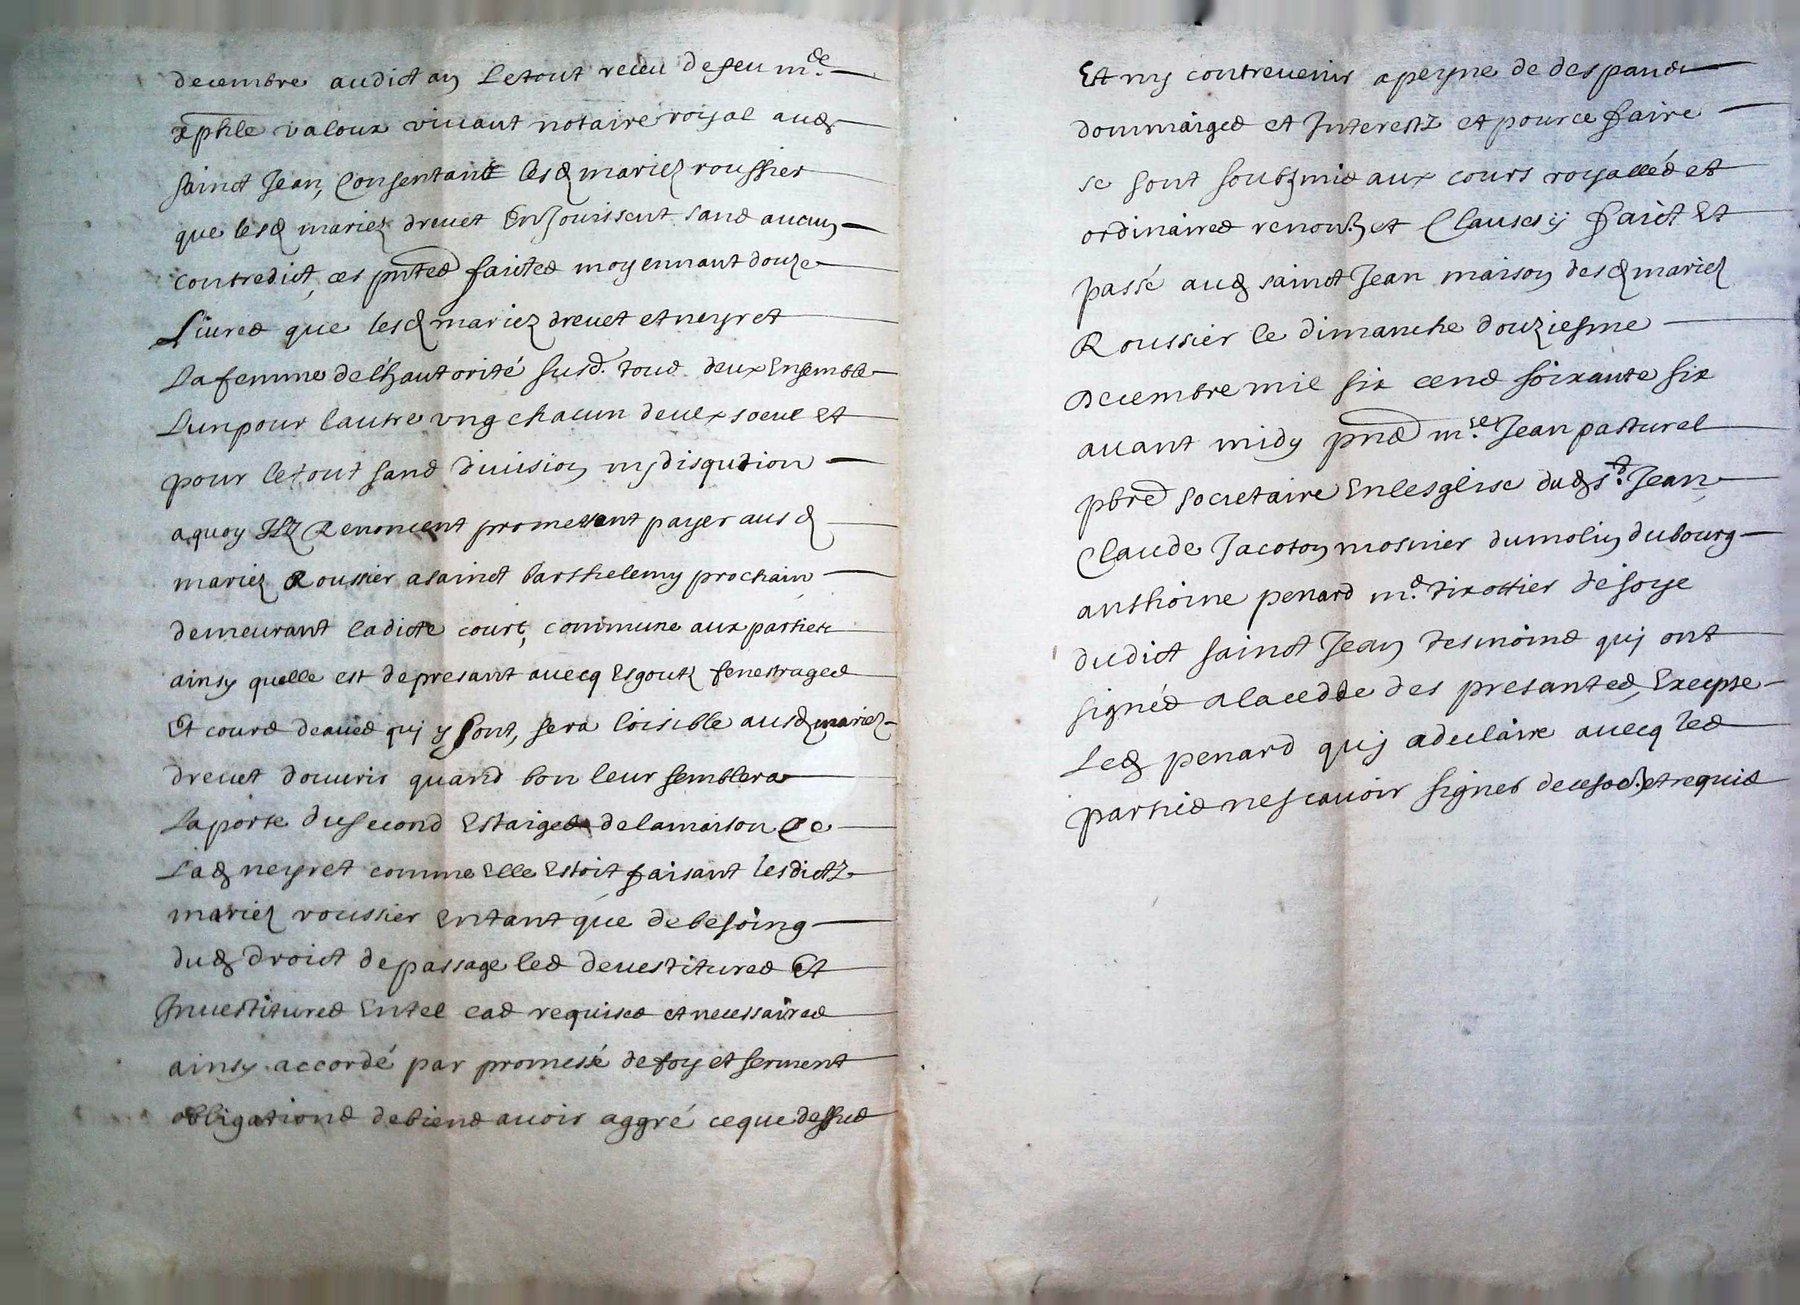 decembre audict an Letout receu defeu m.e
xphle valoux vivant notaire royal aud
sainct Jean, Consentant lesd mariez roussier
que lesd mariez drevet En Jouissent sans aucun
contredict, ces pntes faictes moyennant douze
Livres que lesd mariez drevet et neyret
La femme de lhautorité susd. tous deux Ensemble
Lun pour lautre ung chacun deulx soeul et
pour letout sans division ny disqution
aquoy Ilz Renoncent promettent payer ausd
mariez Roussier a sainct barthelemy prochain
demeurant ladicte court, commune aux parties
ainsy quelle est depresant avecq Esgoutz fenestrages
Et cours deaues qui y sont, sera loisible ausd mariez
drevet douvrir quand bon leur semblera
La porte dusecond Estaige delamaison de
Lad neyret comme Elle Estoit faisant lesdictz
mariez roussier entant que de besoing
dud droict depassage les devestitures Et
Investitures Entel cas requises et necessaires
ainsy accordé par promesse defoy et serment
obligations debiens avoir aggré ceque dessus
Et ny contrevenir apeyne de des pands
dommaiges et Interestz et pource faire
se sont soubzmis aux cours royalles et
ordinaires renon.n et Clauses y faict Et
passé aud sainct Jean maison desd mariez
Roussier le dimanche douziesme
decembre mil six cens soixante six
avant midy pns m.re Jean pasturel
pbre societaire Enlesglise dud s.t Jean
Claude Jacoton mosnier dumolin dubourg
anthoine penard m.d tixottier de soye
dudict sainct Jean tesmoins quy ont
signés alacedde des presantes, Excepte
Led penard quy adeclaire avecq les
parties nescavoir signer decesoe.. et requis